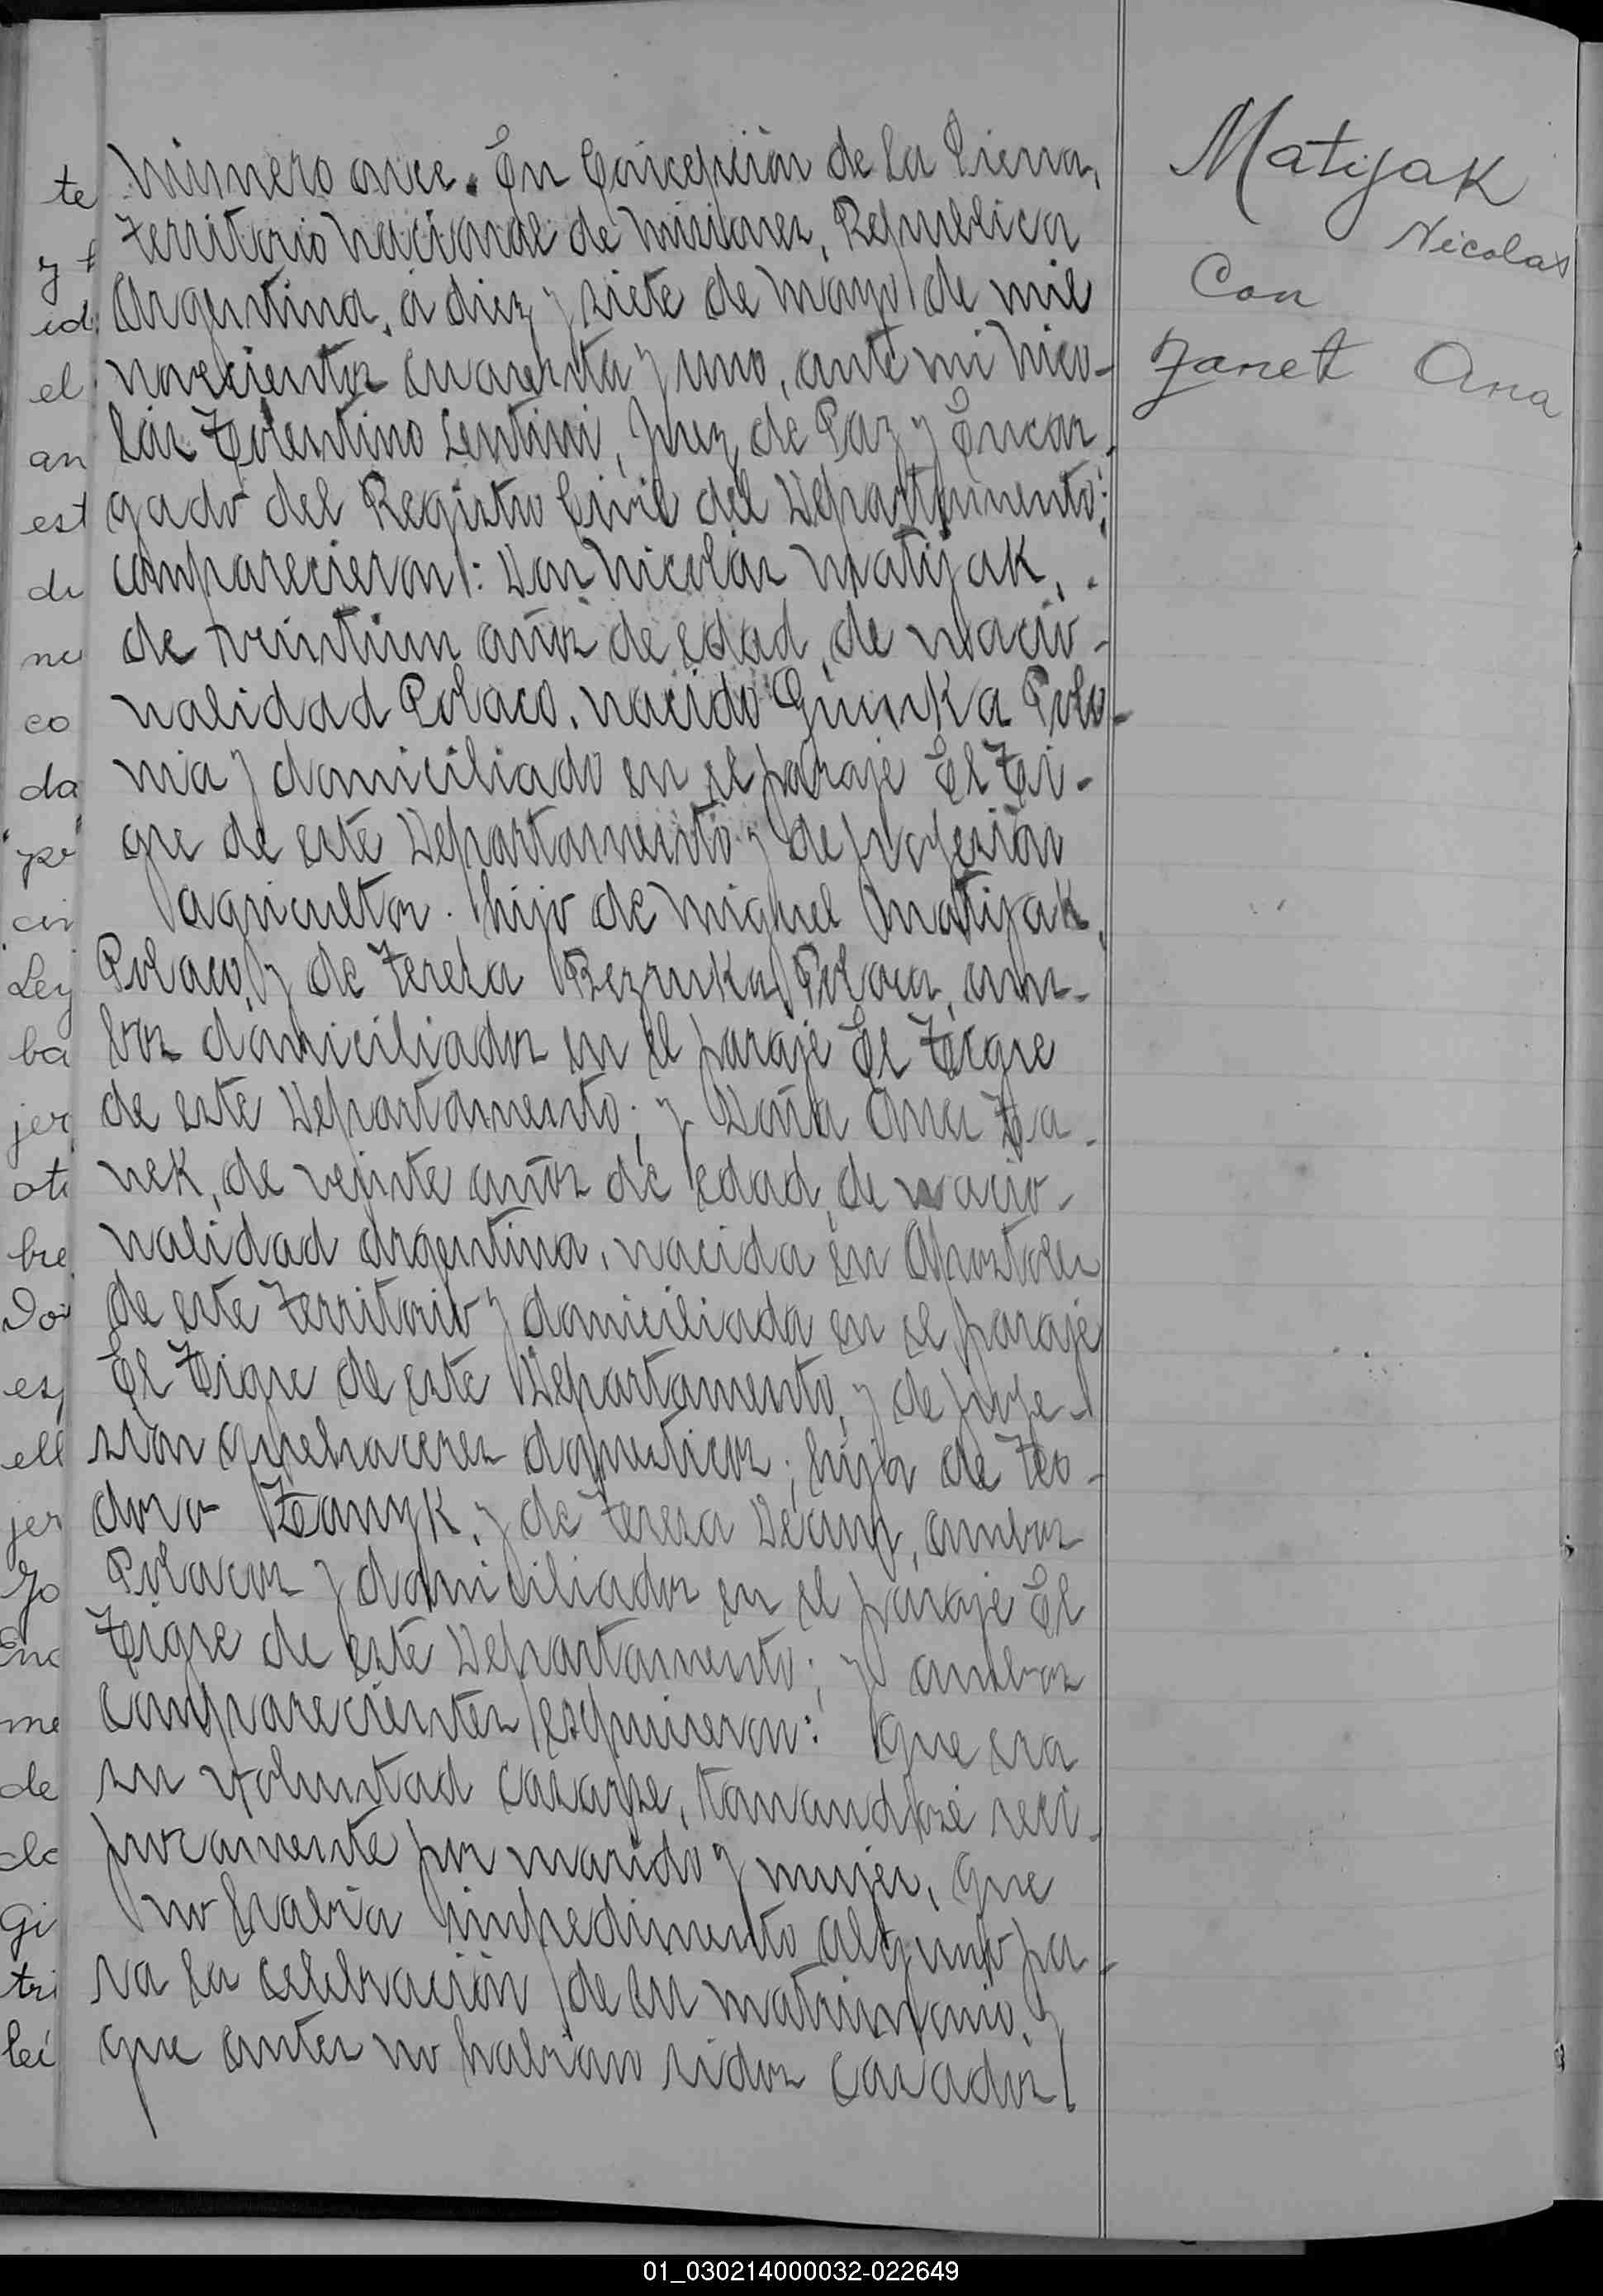 Número once. En Concepción de La Sierra,
Territorio nacional de Misiones, República
Argentina, á diez y siete de Mayo de mil
novecientos cuarenta y uno, ante mi Nico-
lás Tolentino Lentini, Juez de Paz y Encar-
gado del Registro Civil del Departamento;
comparecieron: Don Nicolás Matijak,
de años de edad, de nacio-
nalidad Polaco, nacido Polo-
nia y domiciliado en el paraje El Ti-
gre de este Departamento y de profesión
agricultor. hijo de Miguel Matijak,
Polaco, y de Teresa Polaca, am-
bos domiciliados en el paraje El Tigre
de este Departamento; y Doña Ana
nek, de veinte años de edad, de nacio-
nalidad argentina, nacida en Apostoles
de este Territorio y domiciliada en el paraje
El Tigre de este Departamento, y de profe-
sión quehaceres domesticos; hija de Teo-
doro y de Teresa ambos
Polacos y domiciliados en el paraje El
Tigre de este Departamento; y ambos
comparecientes expusieron: Que era
su voluntad casarse, tomandose reci-
procamente por marido y mujer, que
no habia impedimento alguno pa-
ra la celebración de su matrimonio, y
que antes no habian sidos casados/
Matijak
Nicolas
Con
Zanek Ana
te
el
an
est
de
co
da
Ley
ba
jer
bre
ell
jer
Yo
Enc
me
de
tri
lei
01_030214000032-022649